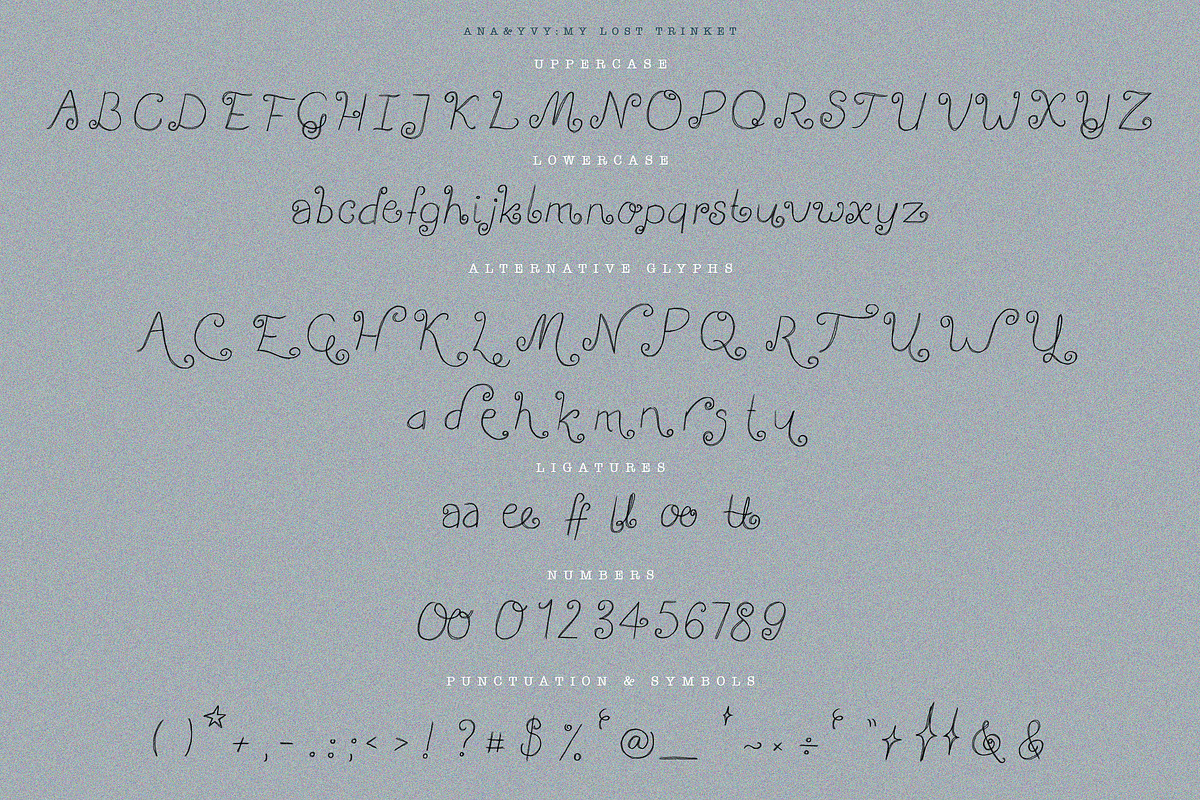 ANA&YVY:MY LOST TRINKET
UPPERCASE
ABCDEFGHIJKLMNOPQRSTUVWXYZ
LOWERCASE
abcdefghijklmnopqrstuvwxyz
ALTERNATIVE GLYPHS
A C E G H K L M N P Q R T U W Y
a d e h k m n r s t u
LIGATURES
aa ee ff ll oo tt
NUMBERS
00 0123456789
PUNCTUATION & SYMBOLS
( ) * + , - . : ; < > ! ? # $ % @ _ ~ × ÷ " & &